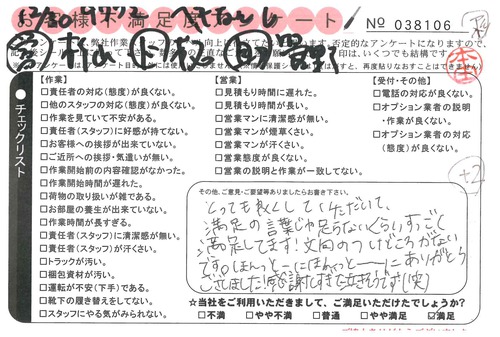 様不満足度
ート
No 038106
チェックリスト
【作業】
□責任者の対応(態度)が良くない。
□他のスタッフの対応(態度)が良くない。
□作業を見ていて不安がある。
□責任者(スタッフ)に好感が持てない。
□お客様への挨拶が出来ていない。
□ご近所への挨拶・気遣いが無い。
□作業開始前の内容確認がなかった。
□作業開始時間が遅れた。
□荷物の取り扱いが雑である。
□お部屋の養生が出来ていない。
□作業時間が長すぎる。
□責任者(スタッフ)に清潔感が無い。
□責任者(スタッフ)が汗くさい。
□トラックが汚い。
□梱包資材が汚い。
□運転が不安(下手)である。
□靴下の履き替えをしてない。
□スタッフにやる気がみられない。
【営業】
□見積もり時間に遅れた。
□見積もり時間が長い。
□営業マンに清潔感が無い。
□営業マンが煙草くさい。
□営業マンが汗くさい。
□営業態度が良くない。
□営業の説明と作業が一致してない。
【受付・その他】
□電話の対応が良くない。
□オプション業者の説明
・作業が良くない。
□オプション業者の対応
(態度)が良くない。
+2
その他、ご意見・ご要望等ありましたらお書き下さい。
とっても良くしていただいて、
満足の言葉じゃ足らないぐらい、すっごく
満足してます!文句のつけどころがない
です。ほんっとーにほんっとーーにありがとう
ございました!感謝しすぎて泣きそうです!(笑)
☆当社をご利用いただきまして、ご満足いただけたでしょうか?
□不満 □やや不満 □普通 □やや満足 ☑満足